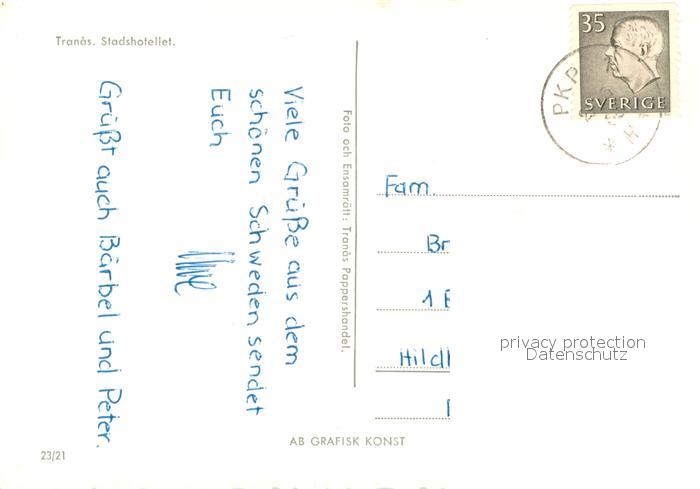 Tranås. Stadshotellet.
35
SVERIGE
PKP
H
Viele Grüße aus dem
schönen Schweden sendet
Euch
Grüßt auch Bärbel und Peter.
Foto och Ensamrätt: Tranås Pappershandel.
Fam.
Br
1 B
Hildl
privacy protection
Datenschutz
AB GRAFISK KONST
23/21